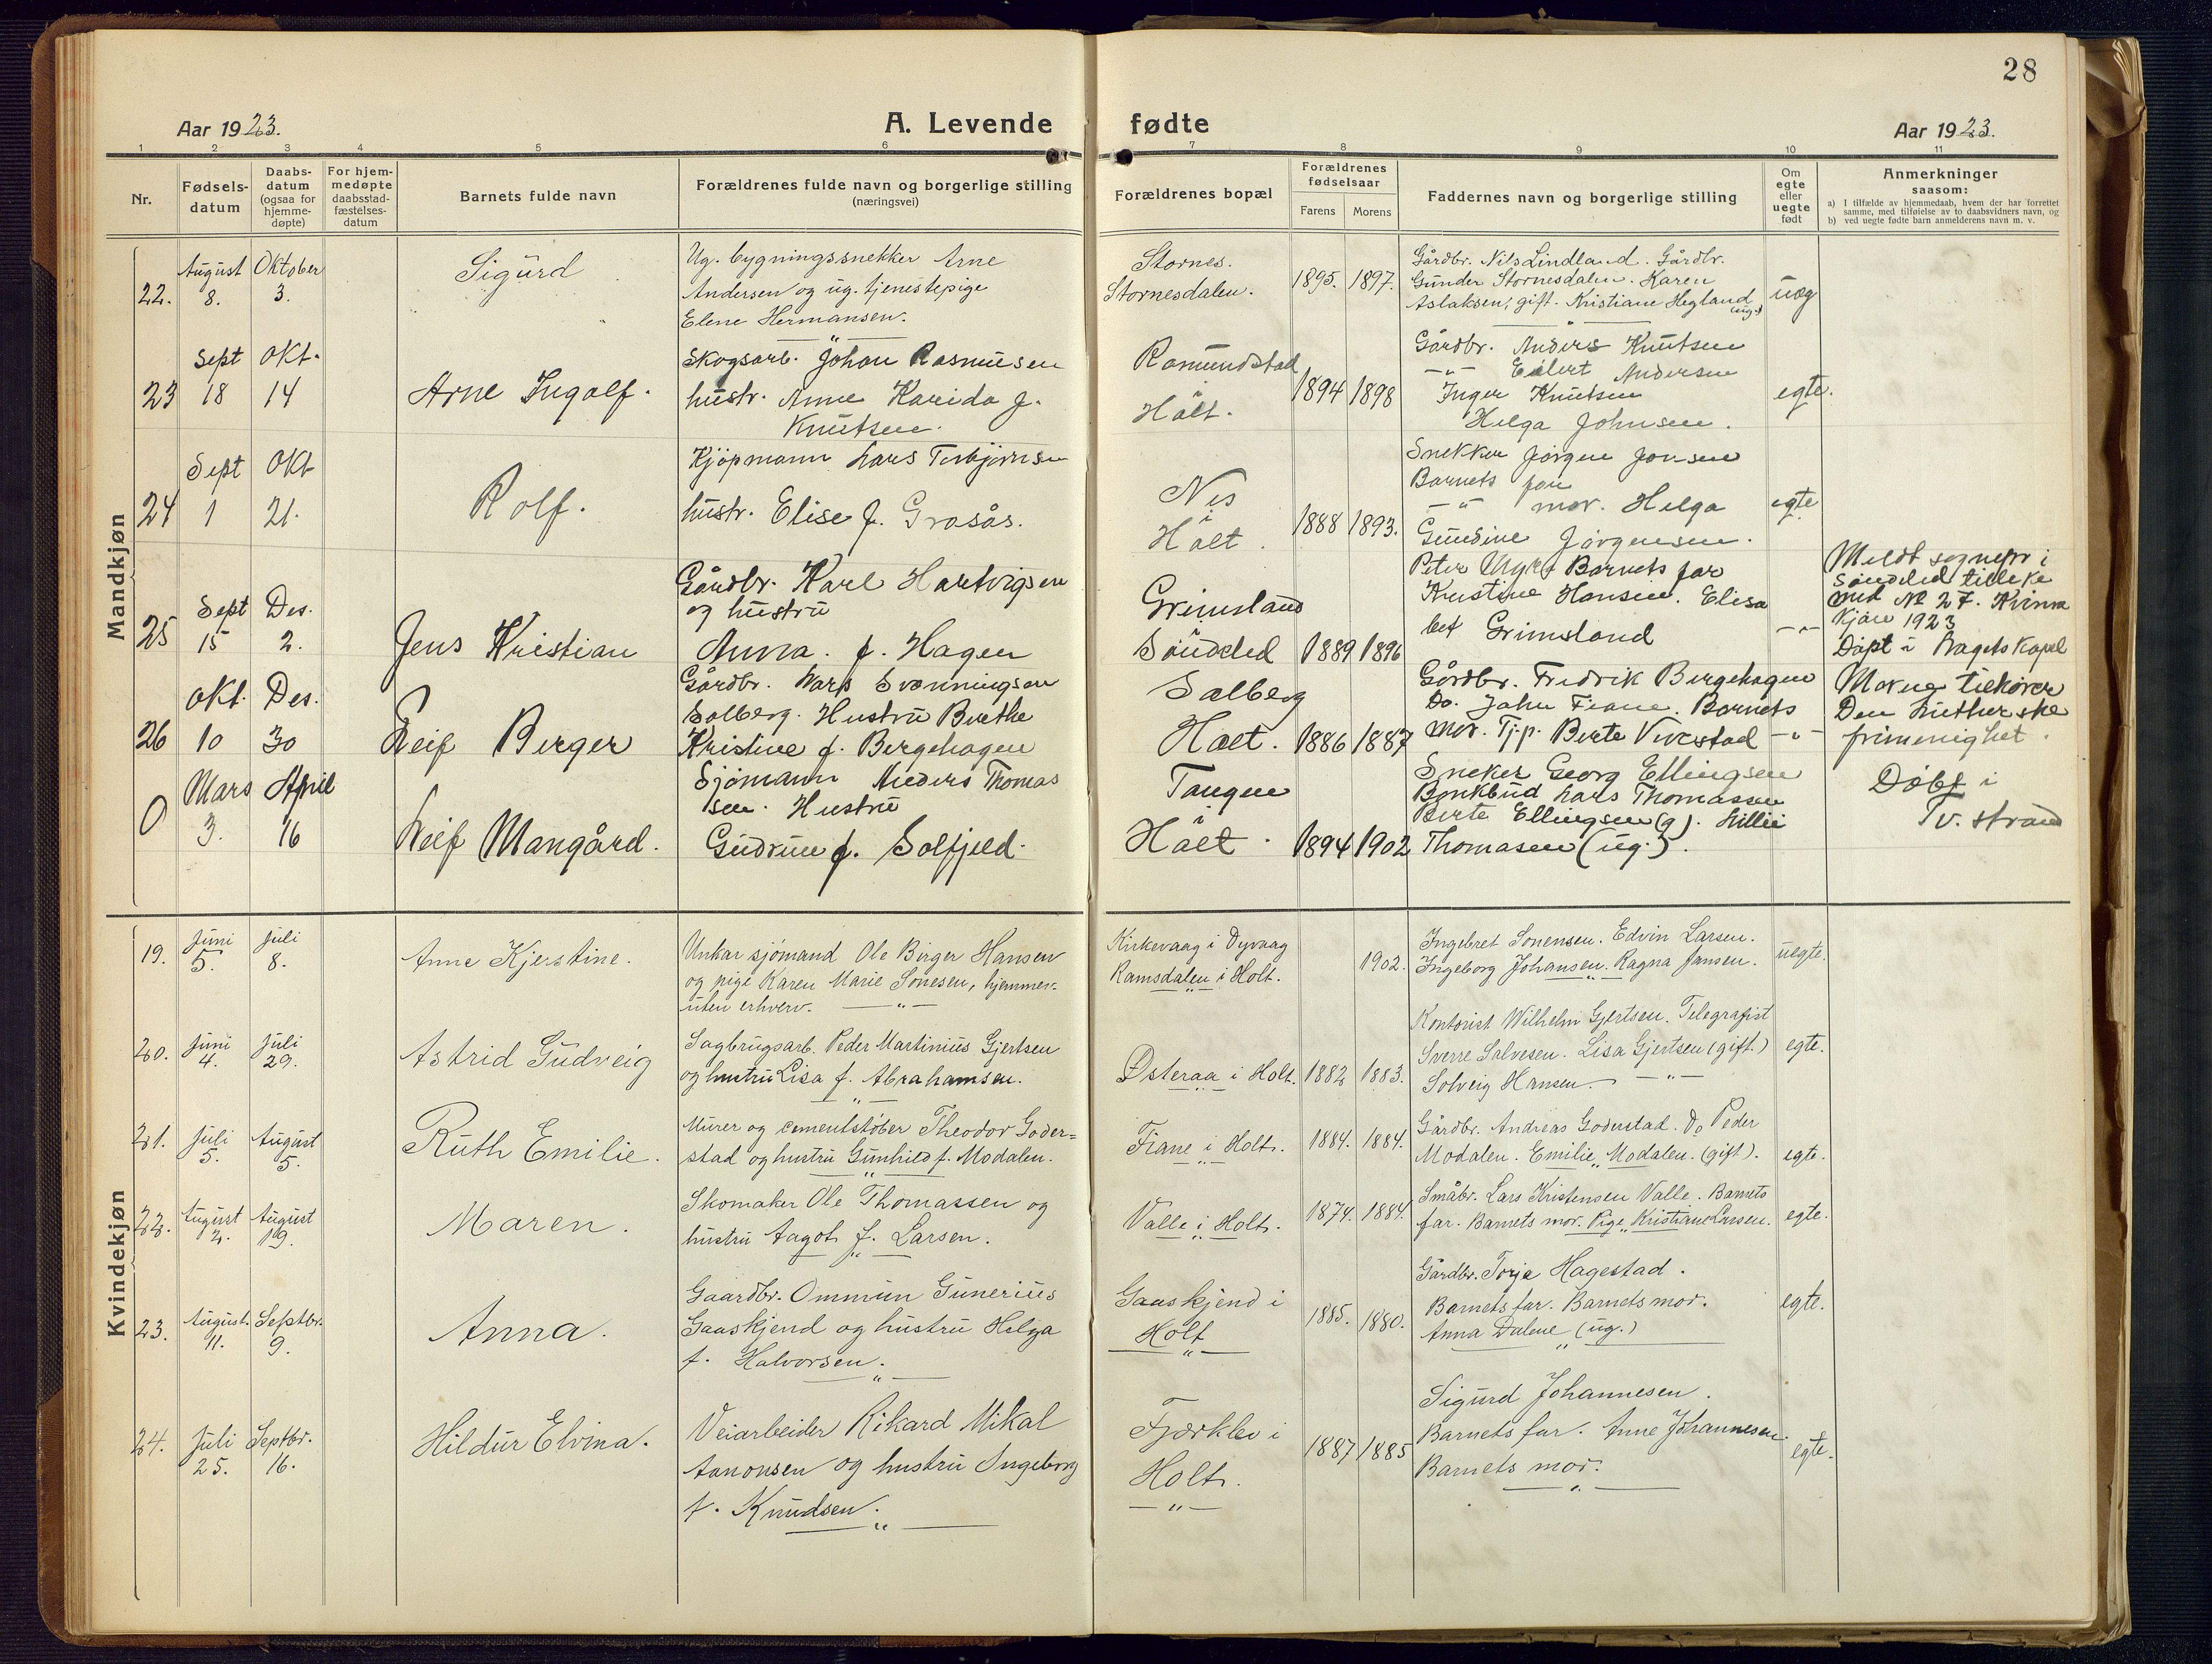 28
Aar 1923.
A. Levende fødte
Aar 1923.
1 2 3 4 5 6 7 8 9 10 11
Nr.
Fødsels-
datum
Daabs-
datum
(ogsaa for
hjemme-
døpte)
For hjem-
medøpte
daabsstad-
fæstelses-
datum
Barnets fulde navn
Forældrenes fulde navn og borgerlige stilling
(næringsvei)
Forældrenes bopæl
Forældrenes
fødselsaar
Farens
Morens
Faddernes navn og borgerlige stilling
Om
egte
eller
uegte
født
Anmerkninger
saasom:
a) I tilfælde av hjemmedaab, hvem der har forrettet
samme, med tilføielse av to daabsvidners navn, og
b) ved uegte fødte barn anmelderens navn m. v.
Mandkjøn
22.
August
8.
Oktober
3.
Sigurd
Ug. bygningssnekker Arne
Andersen og ug. tjenestepige
Elene Hermansen.
Stornes.
Stornesdalen.
1895. 1897.
Gårdbr. Nils Lindland. Gårdbr.
Gunder Stornesdalen. Karen
Aslaksen, gift. Kristiane Hegland
(ug.)
uæg
23
Sept
18
Okt.
14
Arne Ingolf.
Skogsarb. Johan Rasmusen
hustr. Anne Kareida f.
Knutsen.
Romundstad
i
Holt.
1894 1898
Gårdbr. Anders Knutsen
—"— Eilert Andersen
Inger Knutsen
Helga Johnsen.
egte.
24
Sept
1
Okt
21.
Rolf.
Kjöpmann Lars Torbjørnsen
hustr. Elise f. Grasås.
Nes
i
Holt.
1888 1893.
Snekker Jørgen Jonsen
Barnets far
—"— mor. Helga
Gundine Jørgensen.
egte
25
Sept
15
Des.
2.
Jens Kristian
Gårdbr. Karl Hartvigsen
og hustru
Anna. f. Hagen
Grimsland
i
Söndeled
1889 1896
Peter Barnets far
Kristine Hansen. Elisa
bet Grimsland
—"—
Meldt sognepr i
Söndeled tilleke
med № 27. Kvinne
kjön 1923
Döpt i kapel
26
Okt.
10
Des.
30
Leif Berger
Gårdbr. Lars Svenningsen
Solberg. Hustru Berthe
Kristine f. Bergehagen
Solberg
Holt.
1886 1887
Gårdbr. Fredrik Bergehagen
Do. John Fiane. Barnets
mor. Tj.p. Berte Vivestad
—"—
Moren tilhører
Den lutherske
frimenighet.
0
Mars
3.
April
16
Leif Mangård.
Sjömann Anders Thomas
sen. Hustru
Gudrun f. Solfjeld.
Tangen
i
Holt.
1894 1902
Sneker Georg Ellingsen
Bankbud Lars Thomassen
Berte Ellingsen (g). Lillie
Thomasen (ug.).
Döbt i
Tv. strand
Kvindekjøn
19.
Juni
5.
Juli
8.
Anne Kjerstine.
Unkar sjömand Ole Birger Hansen
og pige Karen Marie Sönesen, hjemmev.
uten erhverv. —"—
Kirkevaag i Dyvaag
Ramsdalen i Holt.
1902.
Ingebret Sonensen. Edvin Larsen.
Ingeborg Johansen. Ragna Jansen.
uegte.
20.
Juni
4.
Juli
29.
Astrid Gudveig
Sagbrugsarb. Peder Martinius Gjertsen
og hustru Lisa f. Abrahamsen.
Østeraa i Holt.
1882 1883.
Kontorist Wilhelm Gjertsen. Telegrafist
Sverre Salvesen. Lisa Gjertsen (gift.)
Solveig Hansen. —"—
egte.
21.
Juli
5.
August
5.
Ruth Emilie.
Murer og cementstöber Theodor Goder=
stad og hustru Gunhild f. Modalen.
Fiane i Holt.
1884. 1884.
Gårdbr. Andreas Goderstad. Do Peder
Modalen. Emilie Modalen. (gift).
egte.
22.
August
2.
August
19.
Maren.
Skomaker Ole Thomassen og
hustru Aagot f. Larsen.
Valle i Holt.
1874. 1884.
Småbr. Lars Kristensen Valle. Barnets
far. Barnets mor. Pige Kristiane Larsen.
egte.
23.
August.
11.
Septbr.
9.
Anna.
Gaardbr. Ommun Gunerius
Gaaskjend og hustru Helga
f. Halvorsen.
Gaaskjend i
Holt
1885. 1880.
Gårdbr. Torje Hagestad.
Barnets far. Barnets mor.
Anna Dalene (ug.)
egte.
24.
Juli
25.
Septbr.
16.
Hildur Elvina.
Veiarbeider Rikard Mikal
Aanonsen og hustru Ingeborg
f. Knudsen.
Fjærklev i
Holt.
1887 1885
Sigurd Johannesen.
Barnets far. Anne Johannesen.
Barnets mor.
egte.